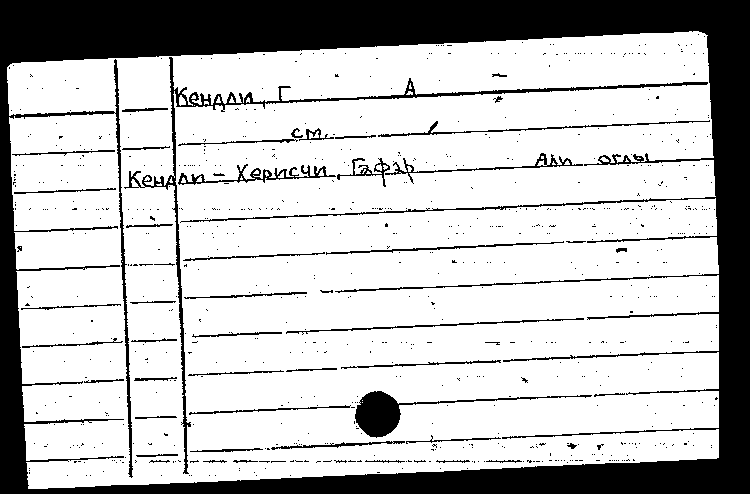 Кендли, Г А
см.
Кендли - Херисчи, Гафар Али оглы